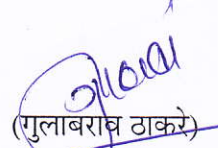 (गुलाबराव ठाकरे)